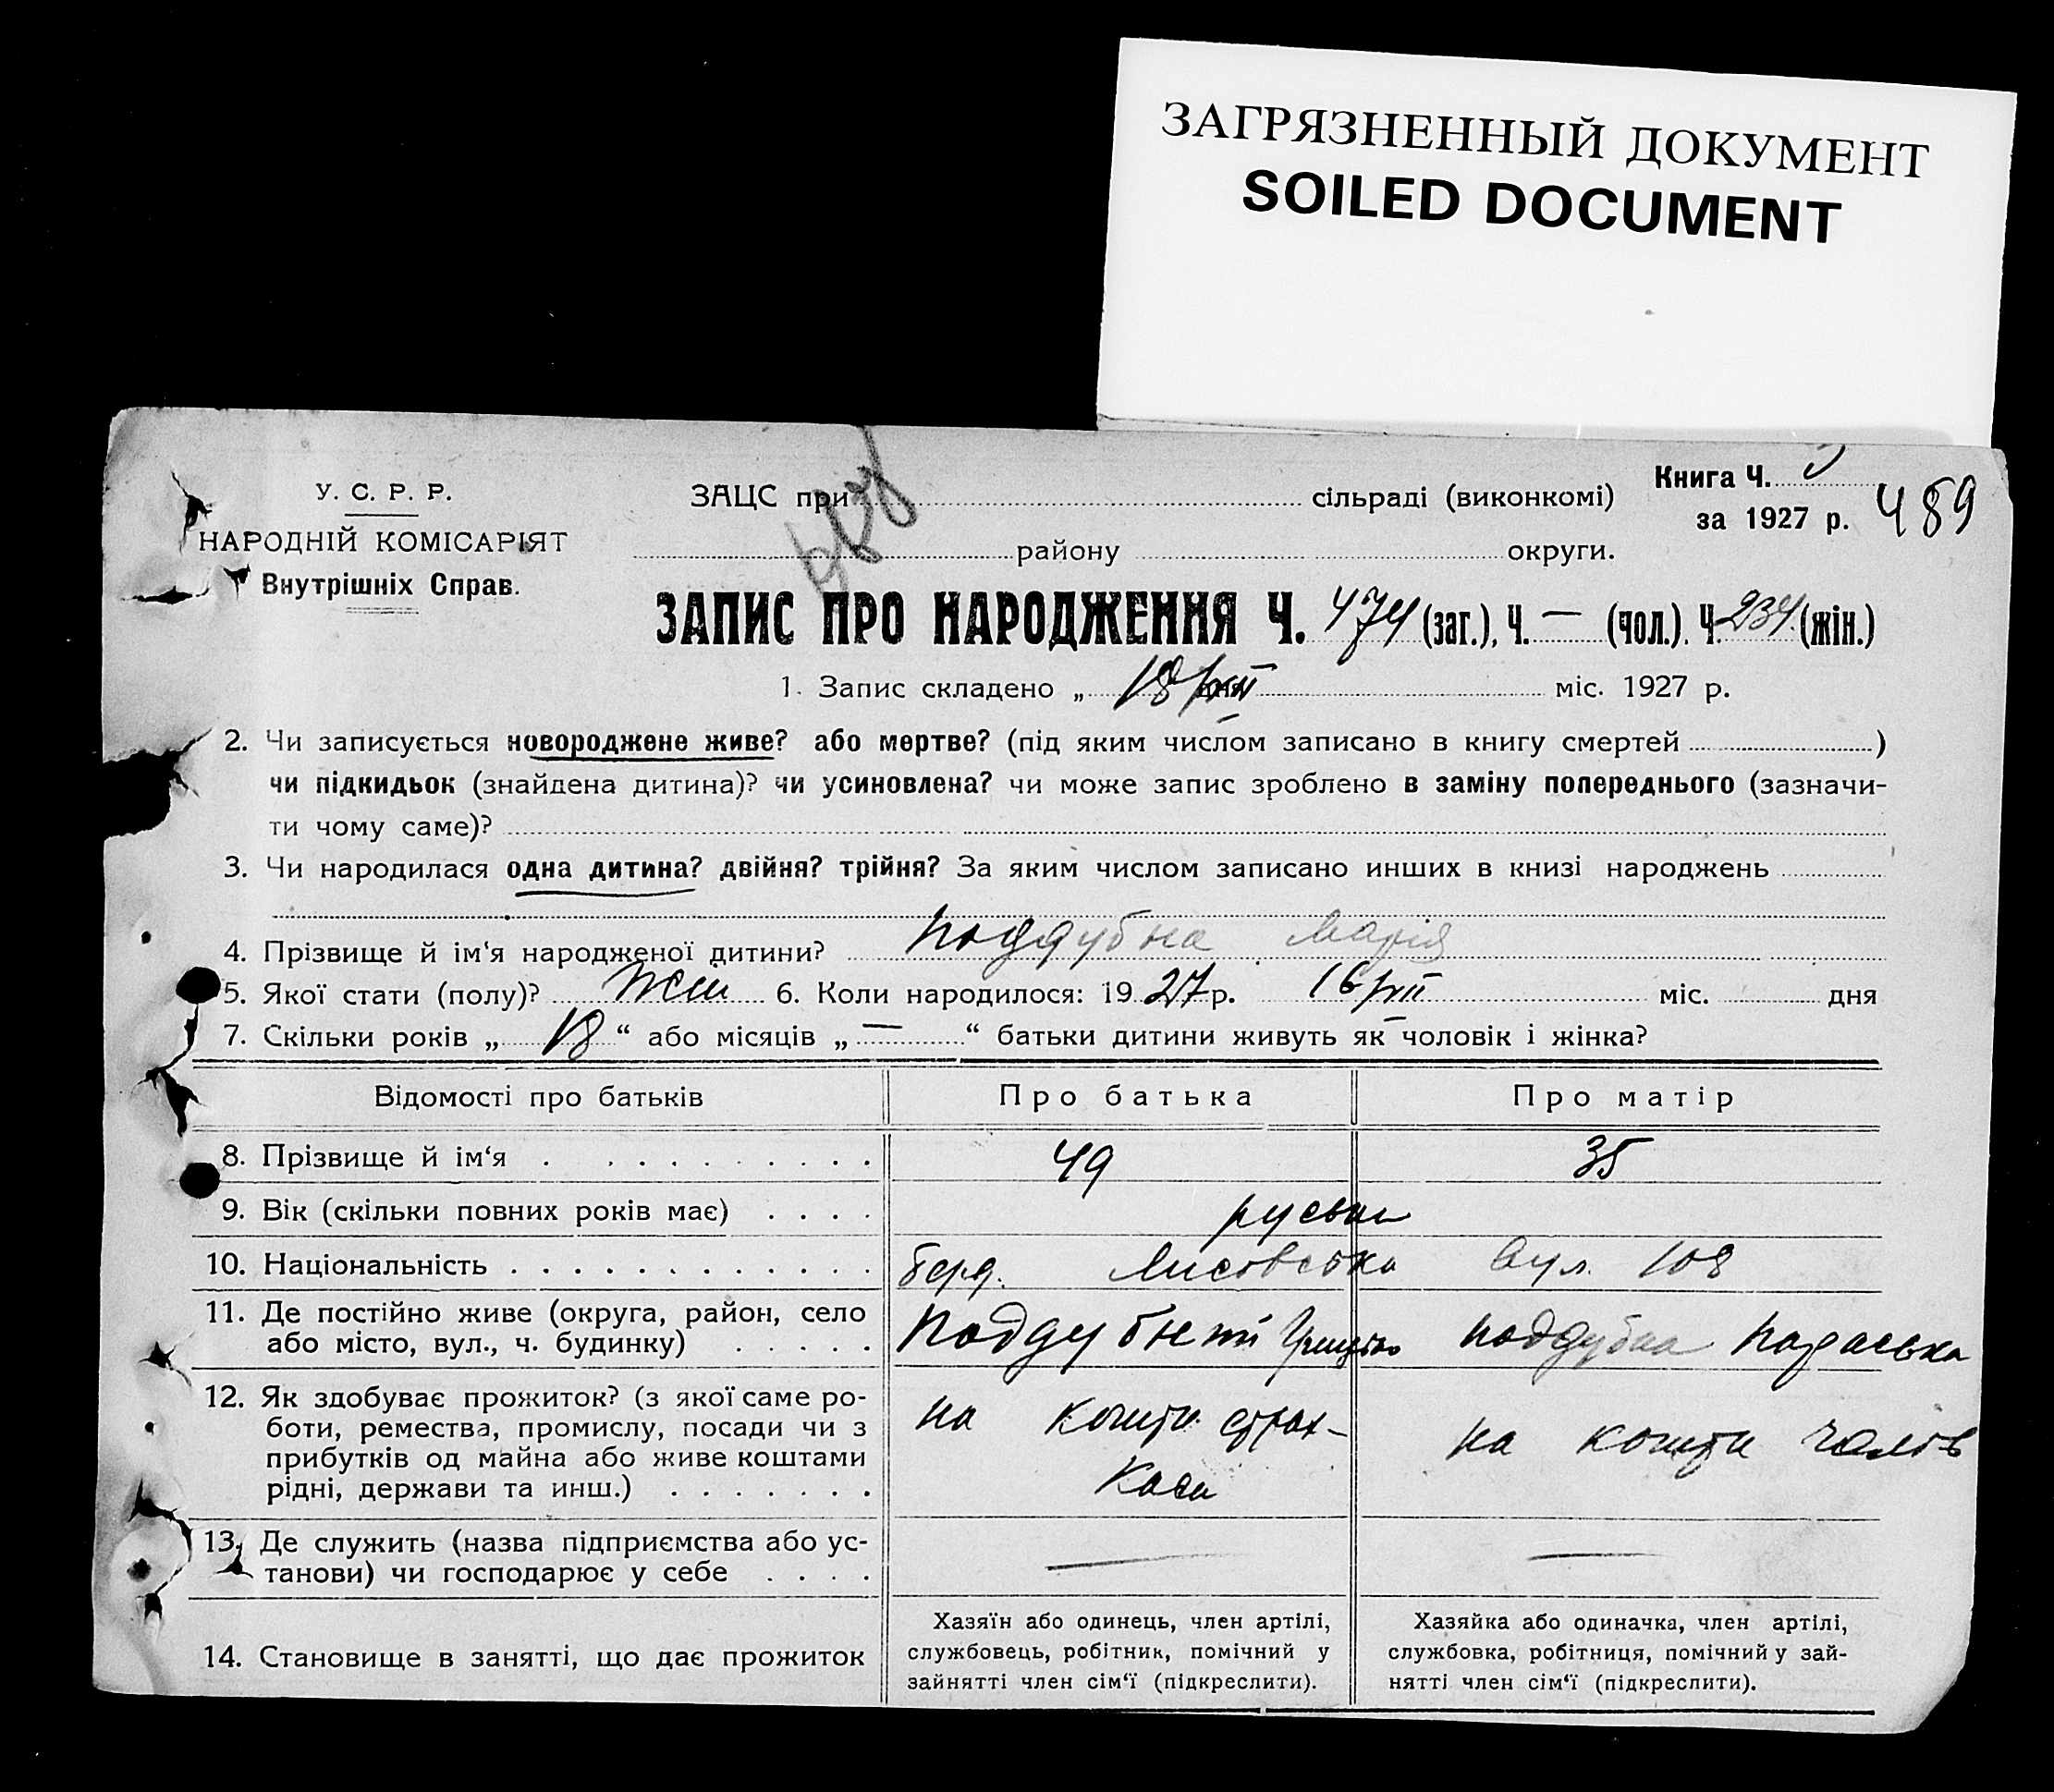 ЗАГРЯЗНЕННЫЙ ДОКУМЕНТ
SOILED DOCUMENT
У. С. Р. Р.
НАРОДНІЙ КОМІСАРІЯТ
Внутрішніх Справ.
ЗАЦС при сільраді (виконкомі)
району округи.
Книга Ч. 3
за 1927 р. 489
ЗАПИС ПРО НАРОДЖЕННЯ Ч. 474 (заг.), Ч. — (чол.). Ч. 234 (жін.)
1. Запис складено „ 18/VIII дня міс. 1927 р.
2. Чи записується новороджене живе? або мертве? (під яким числом записано в книгу смертей )
чи підкидьок (знайдена дитина)? чи усиновлена? чи може запис зроблено в заміну попереднього (зазначи-
ти чому саме)?
3. Чи народилася одна дитина? двійня? трійня? За яким числом записано инших в книзі народжень
4. Прізвище й ім‘я народженої дитини? Поддубна Марія
5. Якої стати (полу)? жін 6. Коли народилося: 1927 р. 16/VIII міс. дня
7. Скільки років „ 18 “ або місяців „ — “ батьки дитини живуть як чоловік і жінка?
Відомості про батьків Про батька Про матір
8. Прізвище й ім‘я 49 35
9. Вік (скільки повних років має) руськи
10. Національність Берд. Лисовська вул. 108
11. Де постійно живе (округа, район, село
або місто, вул., ч. будинку) Поддубний Грицько Поддубна Параська
12. Як здобуває прожиток? (з якої саме ро-
боти, ремества, промислу, посади чи з
прибутків од майна або живе коштами
рідні, держави та инш.)
на кошти страх-
каси
на кошти чолов
13. Де служить (назва підприємства або ус-
танови) чи господарює у себе — —
14. Становище в занятті, що дає прожиток
Хазяїн або одинець, член артілі,
службовець, робітник, помічний у
зайнятті член сім‘ї (підкреслити).
Хазяйка або одиначка, член артілі,
службовка, робітниця, помічний у зай-
нятті член сім‘ї (підкреслити).